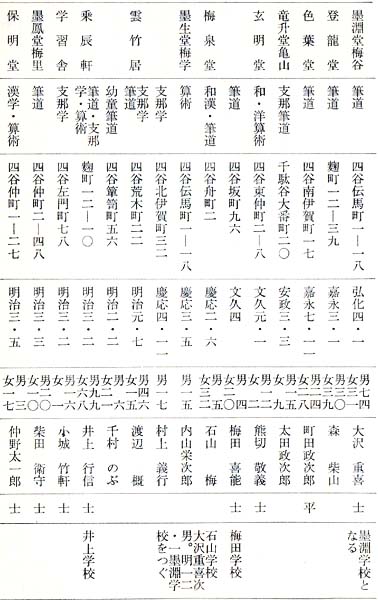 墨淵堂梅谷 筆道 四谷伝馬町一ー一八 弘化四・一 大沢 重喜 士 墨淵学校となる
登龍堂 筆道 麹町一二ー三九 森 柴山
色葉堂 筆道 四谷南伊賀町一七 嘉永七・一一 町田政次郎 平
竜升堂亀山 支那筆道 千駄谷大番町二〇 安政三・三 太田政次郎
玄明堂 和・洋算術 四谷東仲町二ー八 文久元・一 熊切 敬義 士
筆道 四谷坂町九六 文久四 梅田 喜能 士 梅田学校
梅泉堂 和漢・筆道 四谷舟町二 慶応二・六 石山 梅 石山学校
墨生堂梅学 算術 四谷伝馬町一ー一八 慶応三・五 男一五 内山栄次郎 大沢重喜次男。明一二・一墨淵学校をつぐ
支那学 四谷北伊賀町三二 慶応四・一一 男一七 村上 義行
雲竹居 支那学 筆道 四谷荒木町二二 明治元・七 男四六 渡辺 概
幼童筆道 四谷箪笥町五六 明治二・二 千村 のぶ
乗辰軒 筆道・支那学・算術 麹町一二ー一〇 井上 行信 士 井上学校
学習舎 支那学 四谷左門町七八 小城 竹軒 士
墨鳳堂梅里 筆道 四谷仲町二ー四八 明治三・三 柴田 衛守 士
保明堂 漢学・算術 四谷仲町一ー二七 明治三・五 仲野太一郎 士